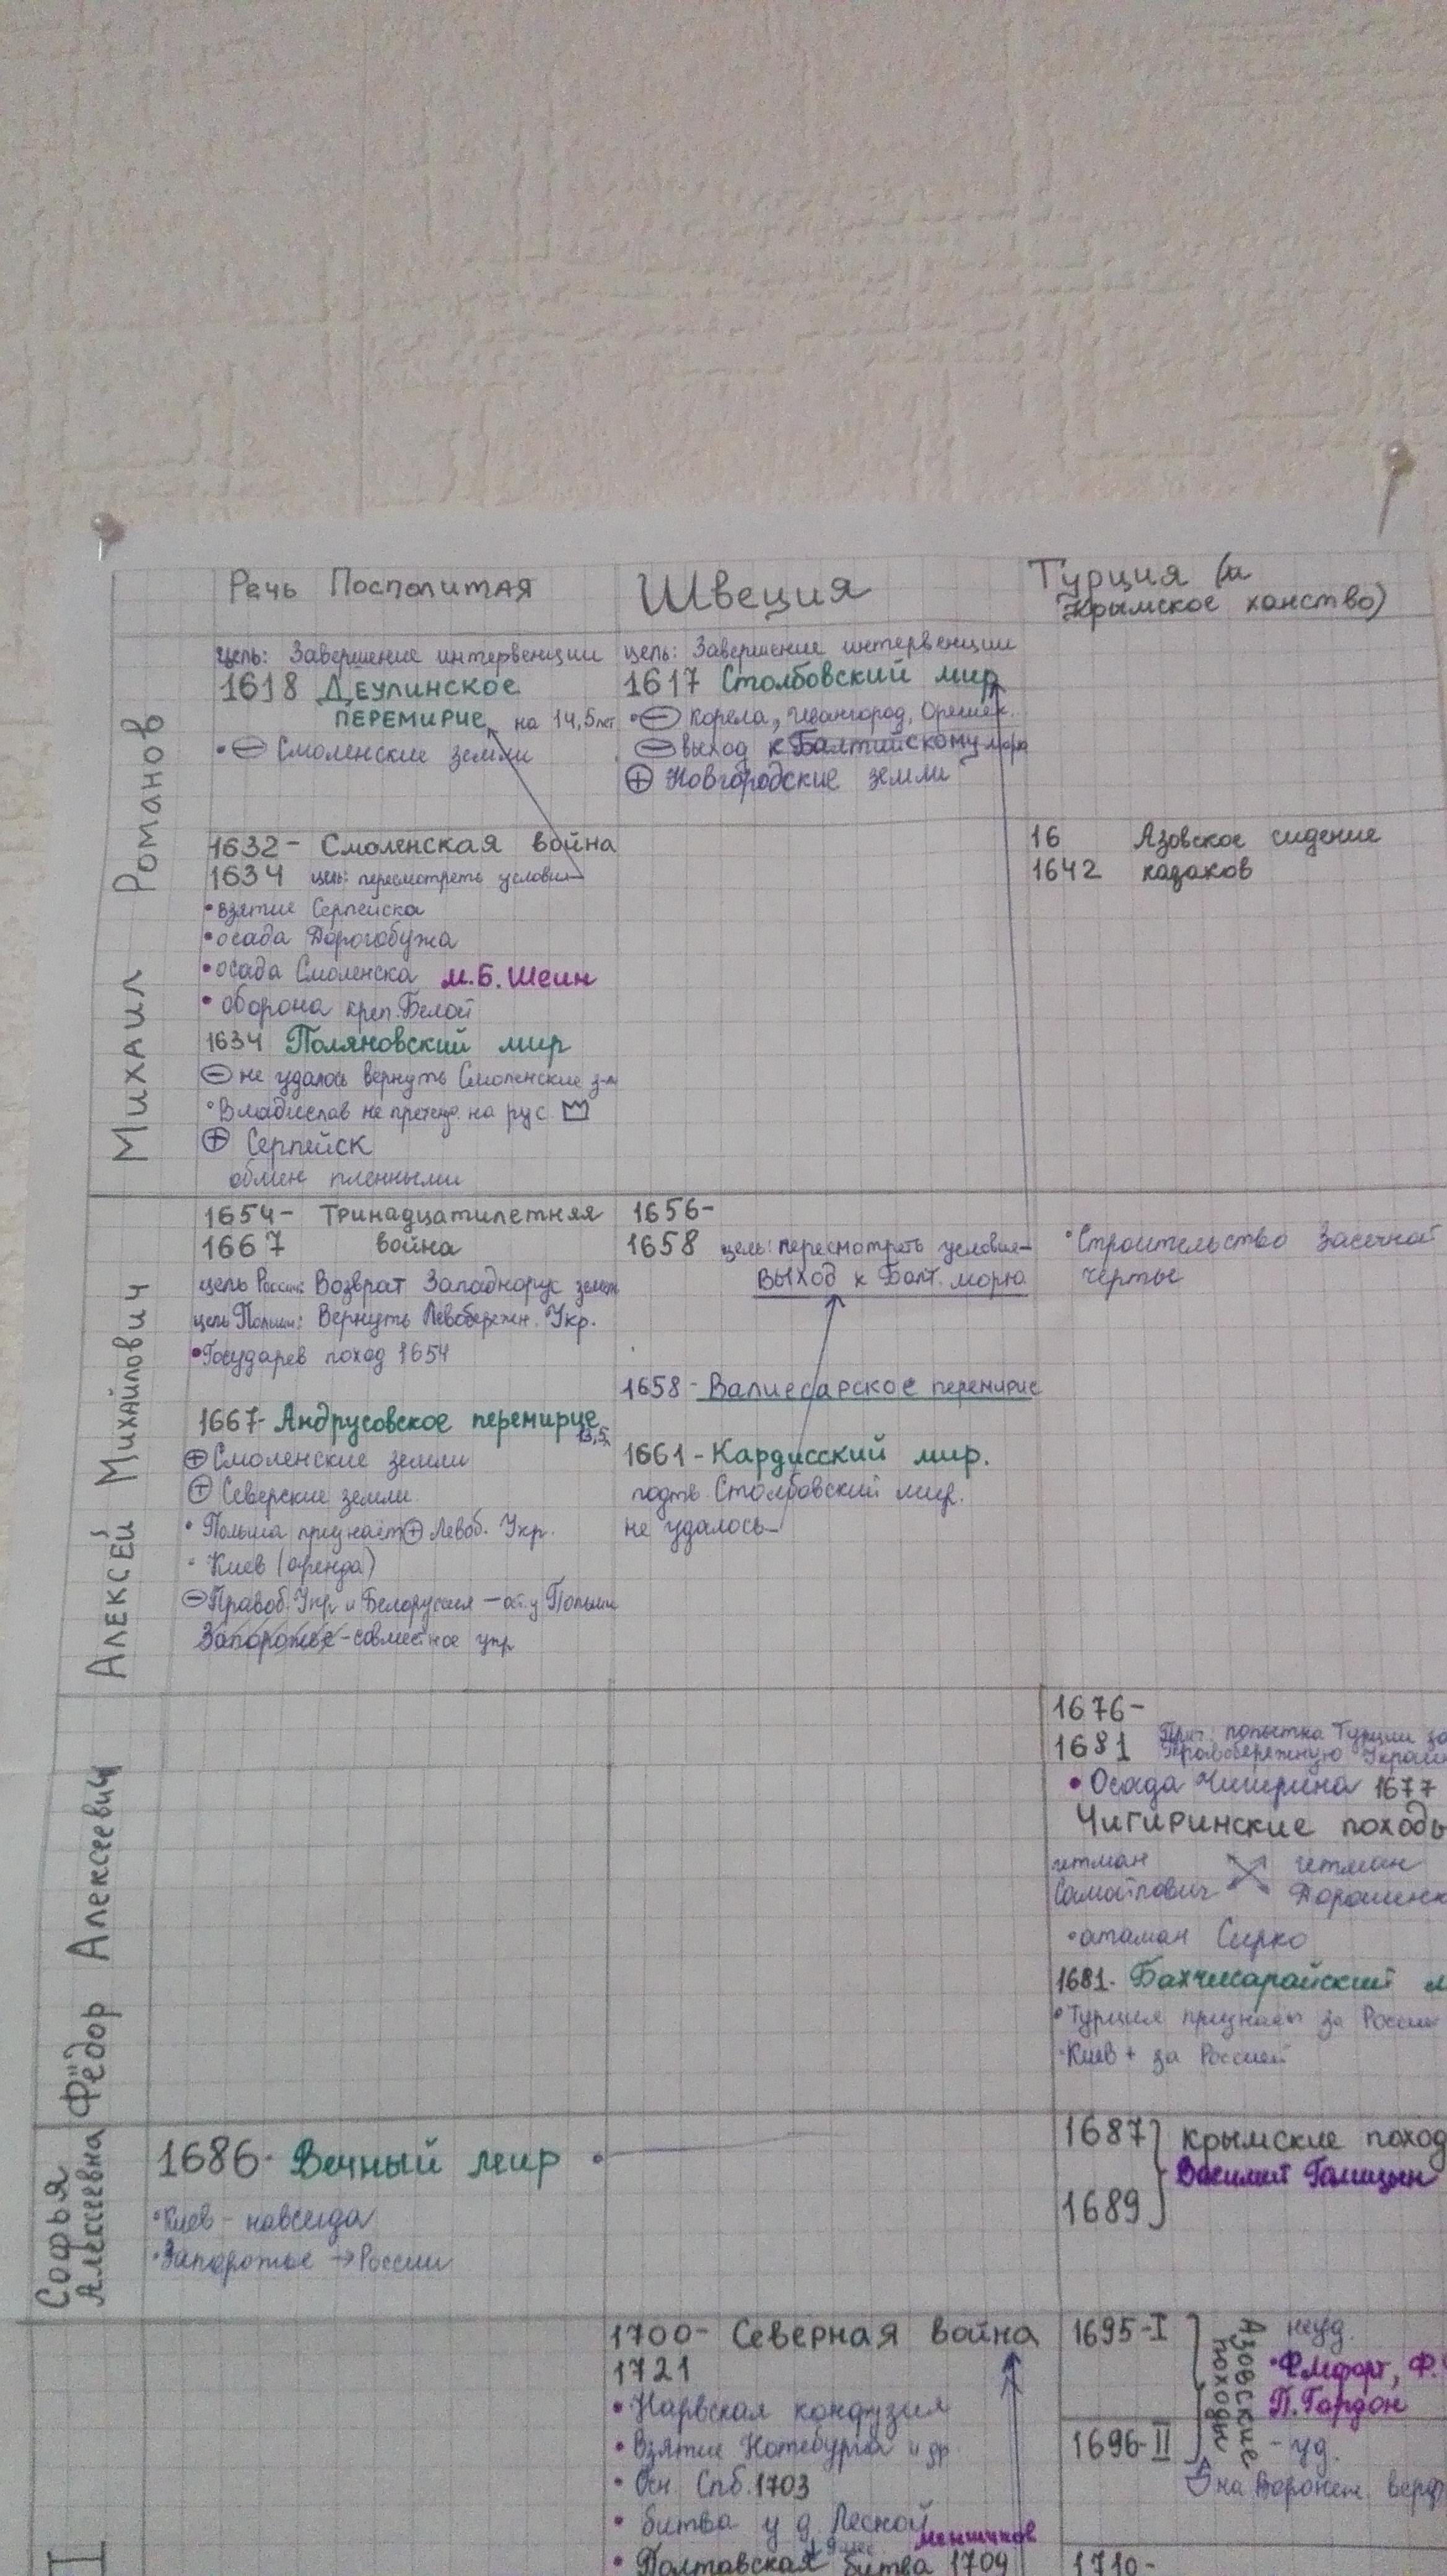 Речь Посполитая
Швеция
Турция (и
Крымское ханство)
Михаил Романов
цель: Завершение интервенции
1618 Деулинское
перемирие на 14,5 лет
• ⊖ Смоленские земли
цель: Завершение интервенции
1617 Столбовский мир
• ⊖ Корела, Ивангород, Орешек.
⊖ выход к Балтийскому морю
⊕ Новгородские земли
1632- Смоленская война
1634 цель: пересмотреть условия
• взятие Серпейска
• осада Дорогобужа
• осада Смоленска М.Б. Шеин
• оборона креп. Белой
1634 Поляновский мир
⊖ не удалось вернуть Смоленские з-л
• Владислав не претенд. на рус.
⊕ Серпейск
обмен пленными
16 Азовское сидение
1642 казаков
Алексей Михайлович
1654- Тринадцатилетняя
1667 война
цель России: Возврат Западнорус земель
цель Польши: Вернуть Левобережн. Укр.
• Государев поход 1654
1667- Андрусовское перемирие
13,5
⊕ Смоленские земли
⊕ Северские земли
• Польша признаёт ⊕ Левоб. Укр.
• Киев (аренда)
⊖ Правоб. Укр и Белоруссия – ост. у Польши
Запорожье - совместное упр
1656-
1658 цель: пересмотреть условия –
выход к Балт. морю
1658 - Валиесарское перемирие
1661 - Кардисский мир.
подтв. Столбовский мир.
не удалось
• Строительство Засечной
черты
Фёдор Алексеевич
1676-
1681 Прич.: попытка Турции за
Правобережную Украин
• Осада Чигирина 1677
Чигиринские походы
гетман гетман
Самойлович Дорошенк
• атаман Сирко
1681- Бахчисарайский м
• Турция признаёт за Россией
• Киев + за Россией
Софья Алексеевна
1686- Вечный мир
• Киев - навсегда
• Запорожье → России
1687 Крымские поход
Василий Голицын
1689
I
1700- Северная война
1721
• Нарвская конфузия
• Взятие Нотебурга и др.
• Осн. Спб. 1703
• битва у д. Лесной
Меншиков
• Полтавская битва 1709
1695-I неуд.
Азовские походы
• Ф. Лефорт, Ф.
П. Гордон
1696-II - уд.
на Воронеж. верф
1710-